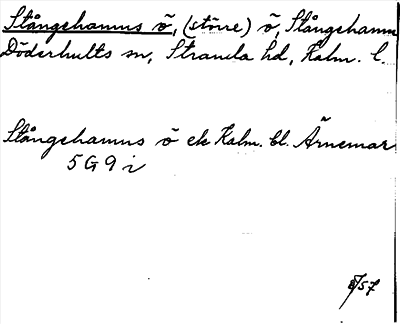 Stångehamns ö, (större) ö, Stångehamn
Döderhults sn, Stranda hd, Kalm. l.
Stångehamns ö ek Kalm. bl. Ärnemar
5 G 9 i
8/57